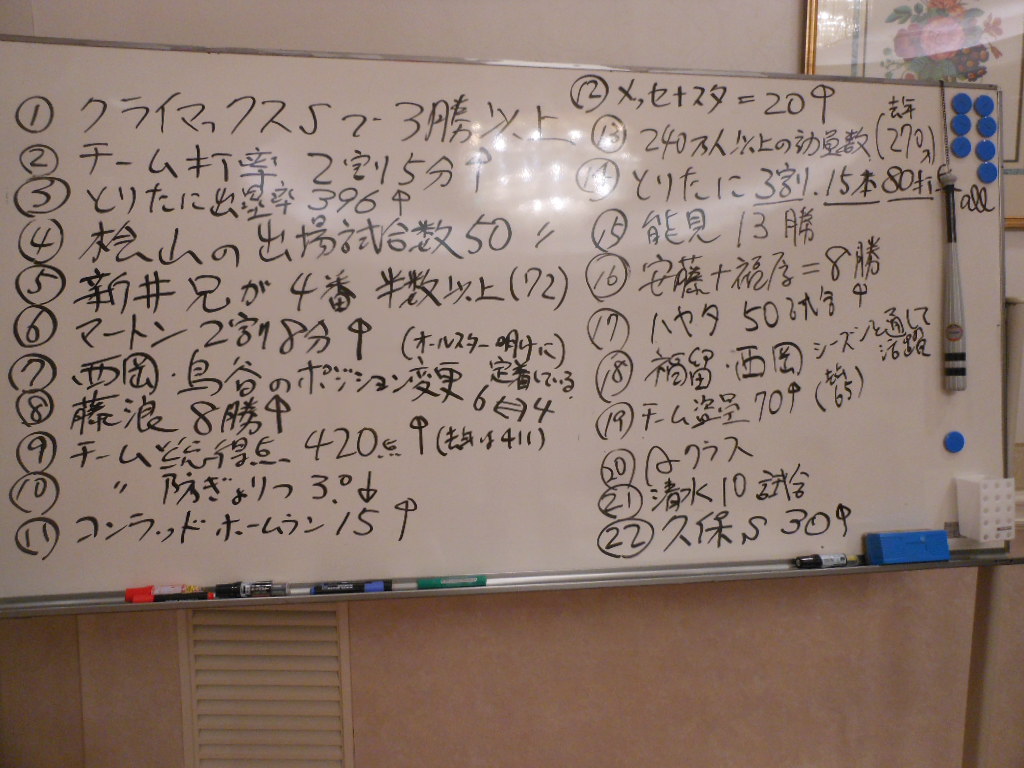 ① クライマックスSで 3勝以上
② チーム打率 2割5分↑
③ とりたに出塁率 396↑
④ 桧山の出場試合数50 〃
⑤ 新井兄が 4番 半数以上(72)
⑥ マートン 2割8分↑ (オールスター明けに)
⑦ 西岡・鳥谷のポジション変更 定着している
6⇔4
⑧ 藤浪 8勝↑
⑨ チーム総得点 420点↑(去年は411)
⑩ 〃 防ぎょりつ 3.0↓
⑪ コンラッド ホームラン 15↑
⑫ メッセ+スタ=20↑
⑬ 240万人以上の動員数 (去年270万)
⑭ とりたに 3割.15本.80打 all
⑮ 能見 13勝
⑯ 安藤+福原=8勝
⑰ ハヤタ 50試合↑
⑱ 福留・西岡 シーズンを通して活躍
⑲ チーム盗塁 70↑ (去年65)
⑳ Aクラス
㉑ 清水 10試合
㉒ 久保 S 30↑